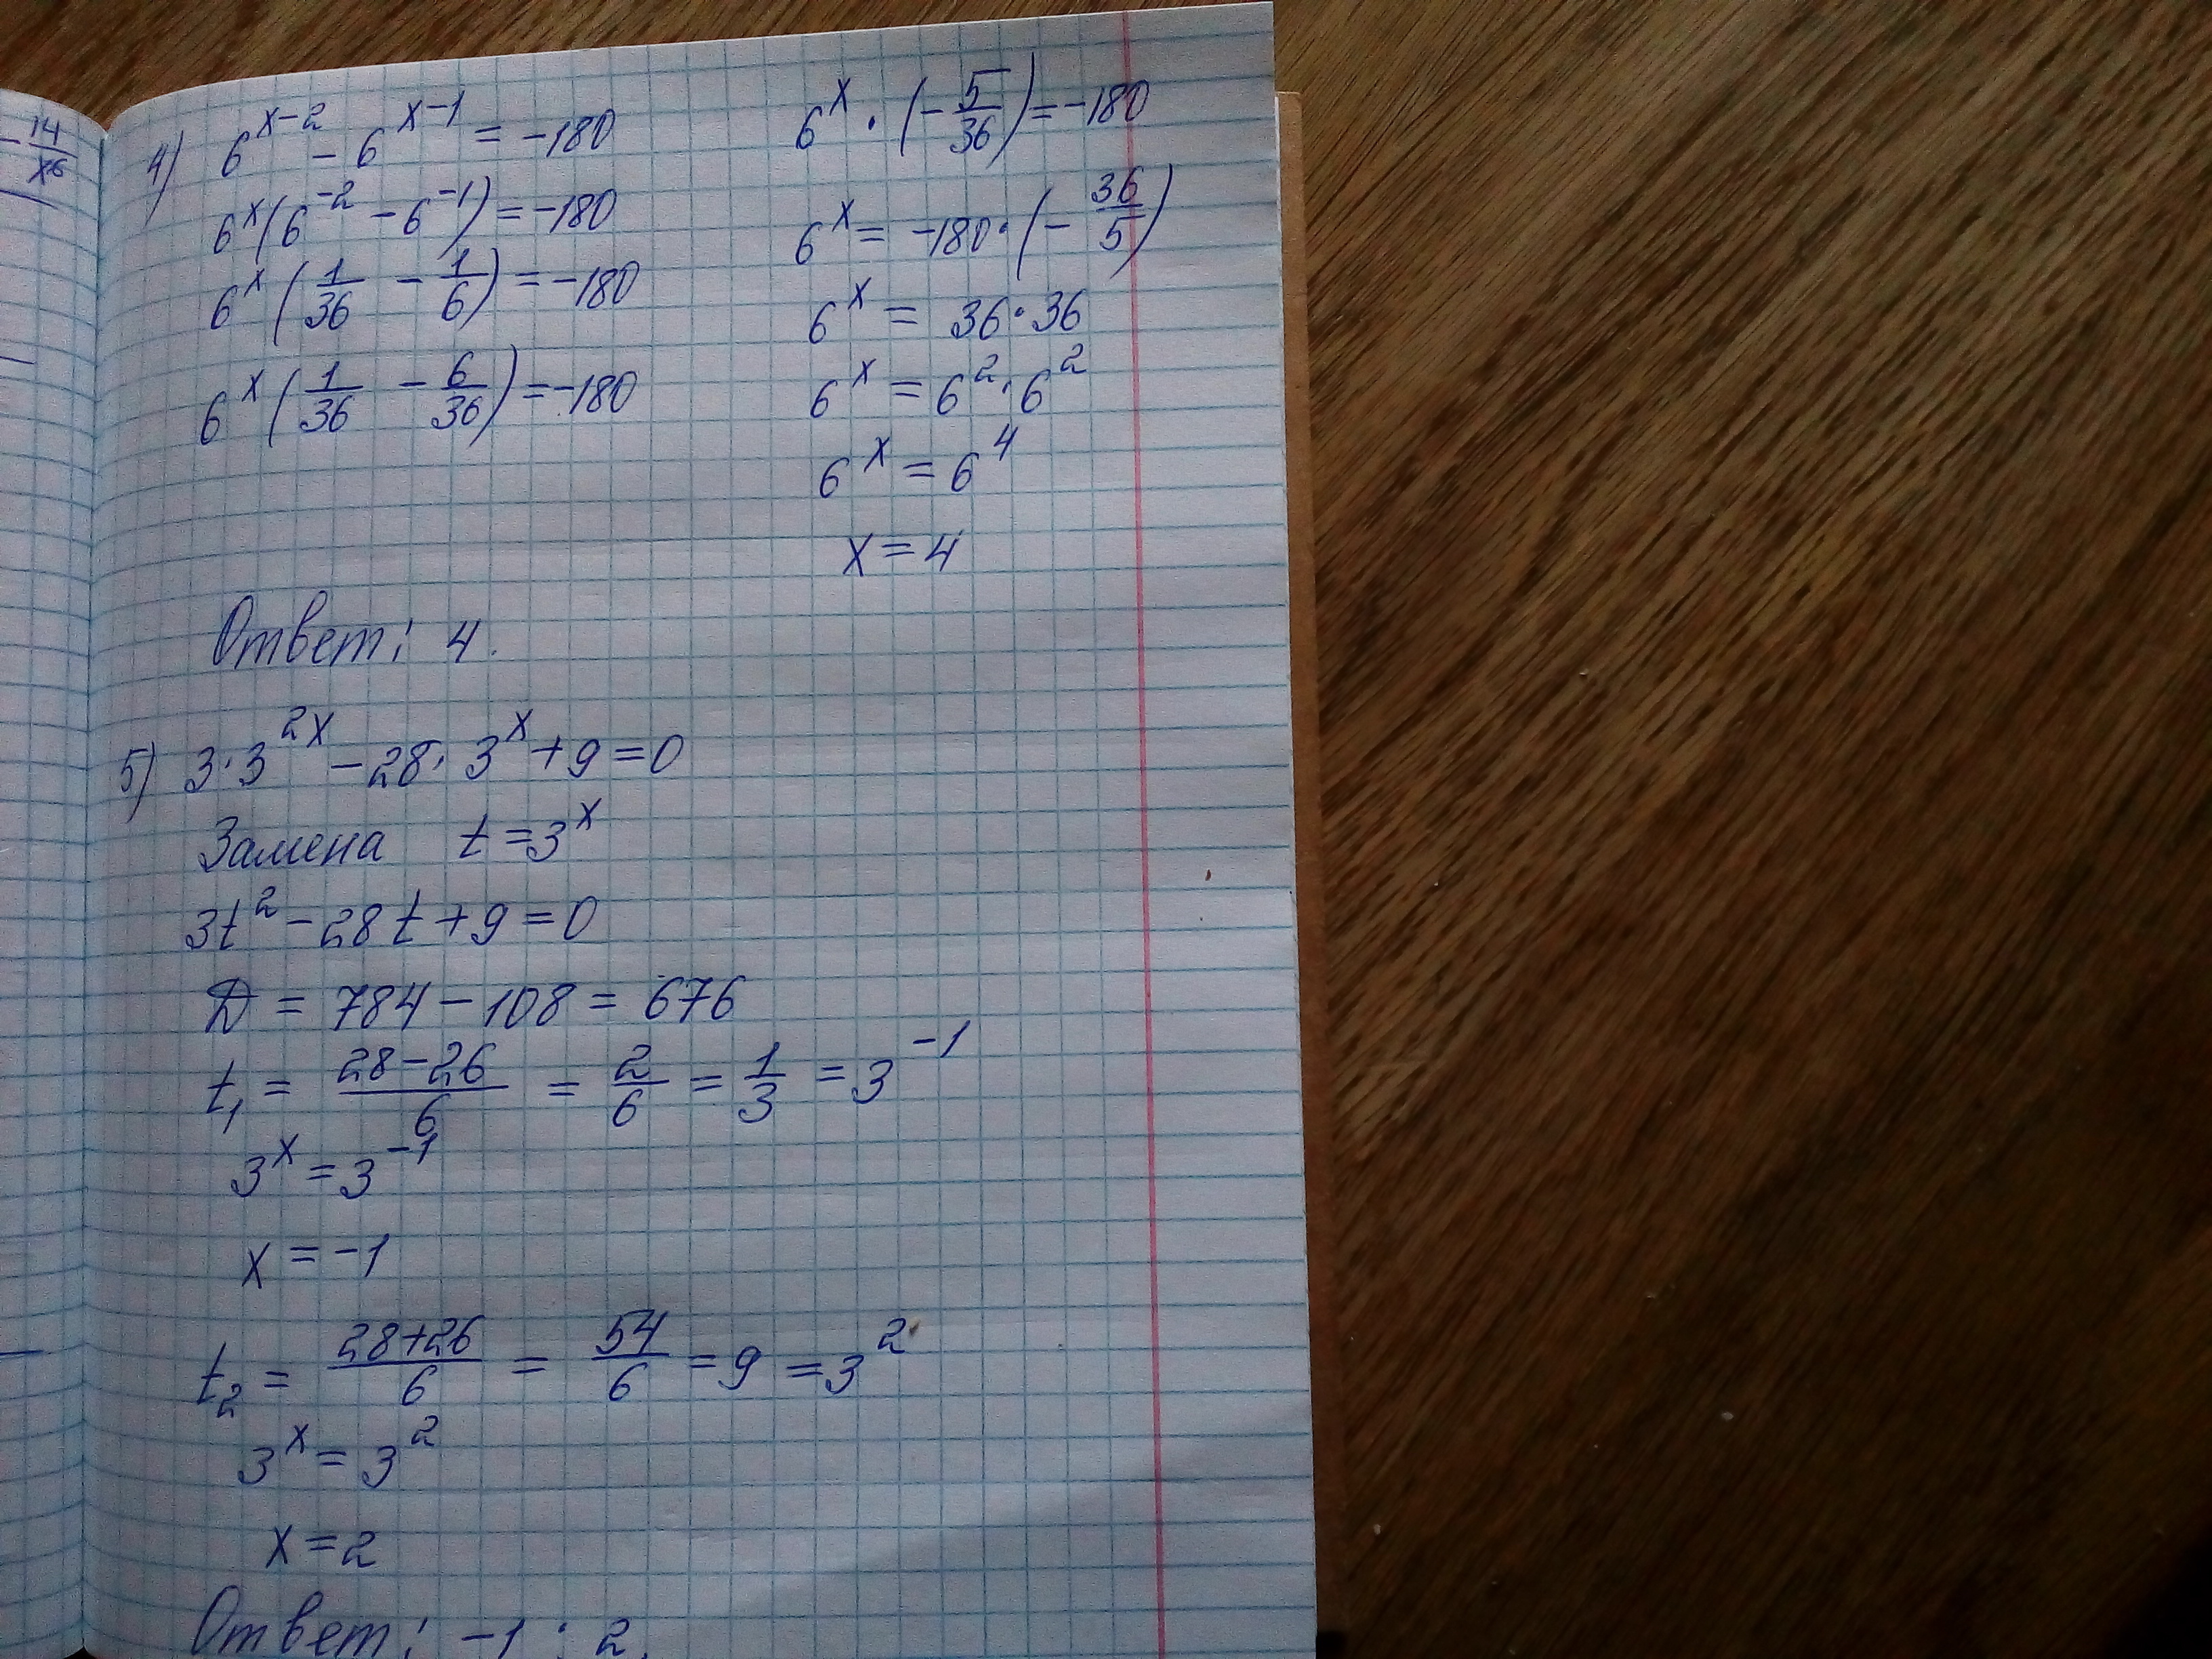 -14/x⁶
4) 6^(x-2) - 6^(x-1) = -180
6^x(6^(-2) - 6^(-1)) = -180
6^x(1/36 - 1/6) = -180
6^x(1/36 - 6/36) = -180
6^x · (-5/36) = -180
6^x = -180 · (-36/5)
6^x = 36 · 36
6^x = 6² · 6²
6^x = 6⁴
x = 4
Ответ: 4.
5) 3 · 3^(2x) - 28 · 3^x + 9 = 0
Замена t = 3^x
3t² - 28t + 9 = 0
D = 784 - 108 = 676
t₁ = (28-26)/6 = 2/6 = 1/3 = 3^(-1)
3^x = 3^(-1)
x = -1
t₂ = (28+26)/6 = 54/6 = 9 = 3²
3^x = 3²
x = 2
Ответ: -1; 2.